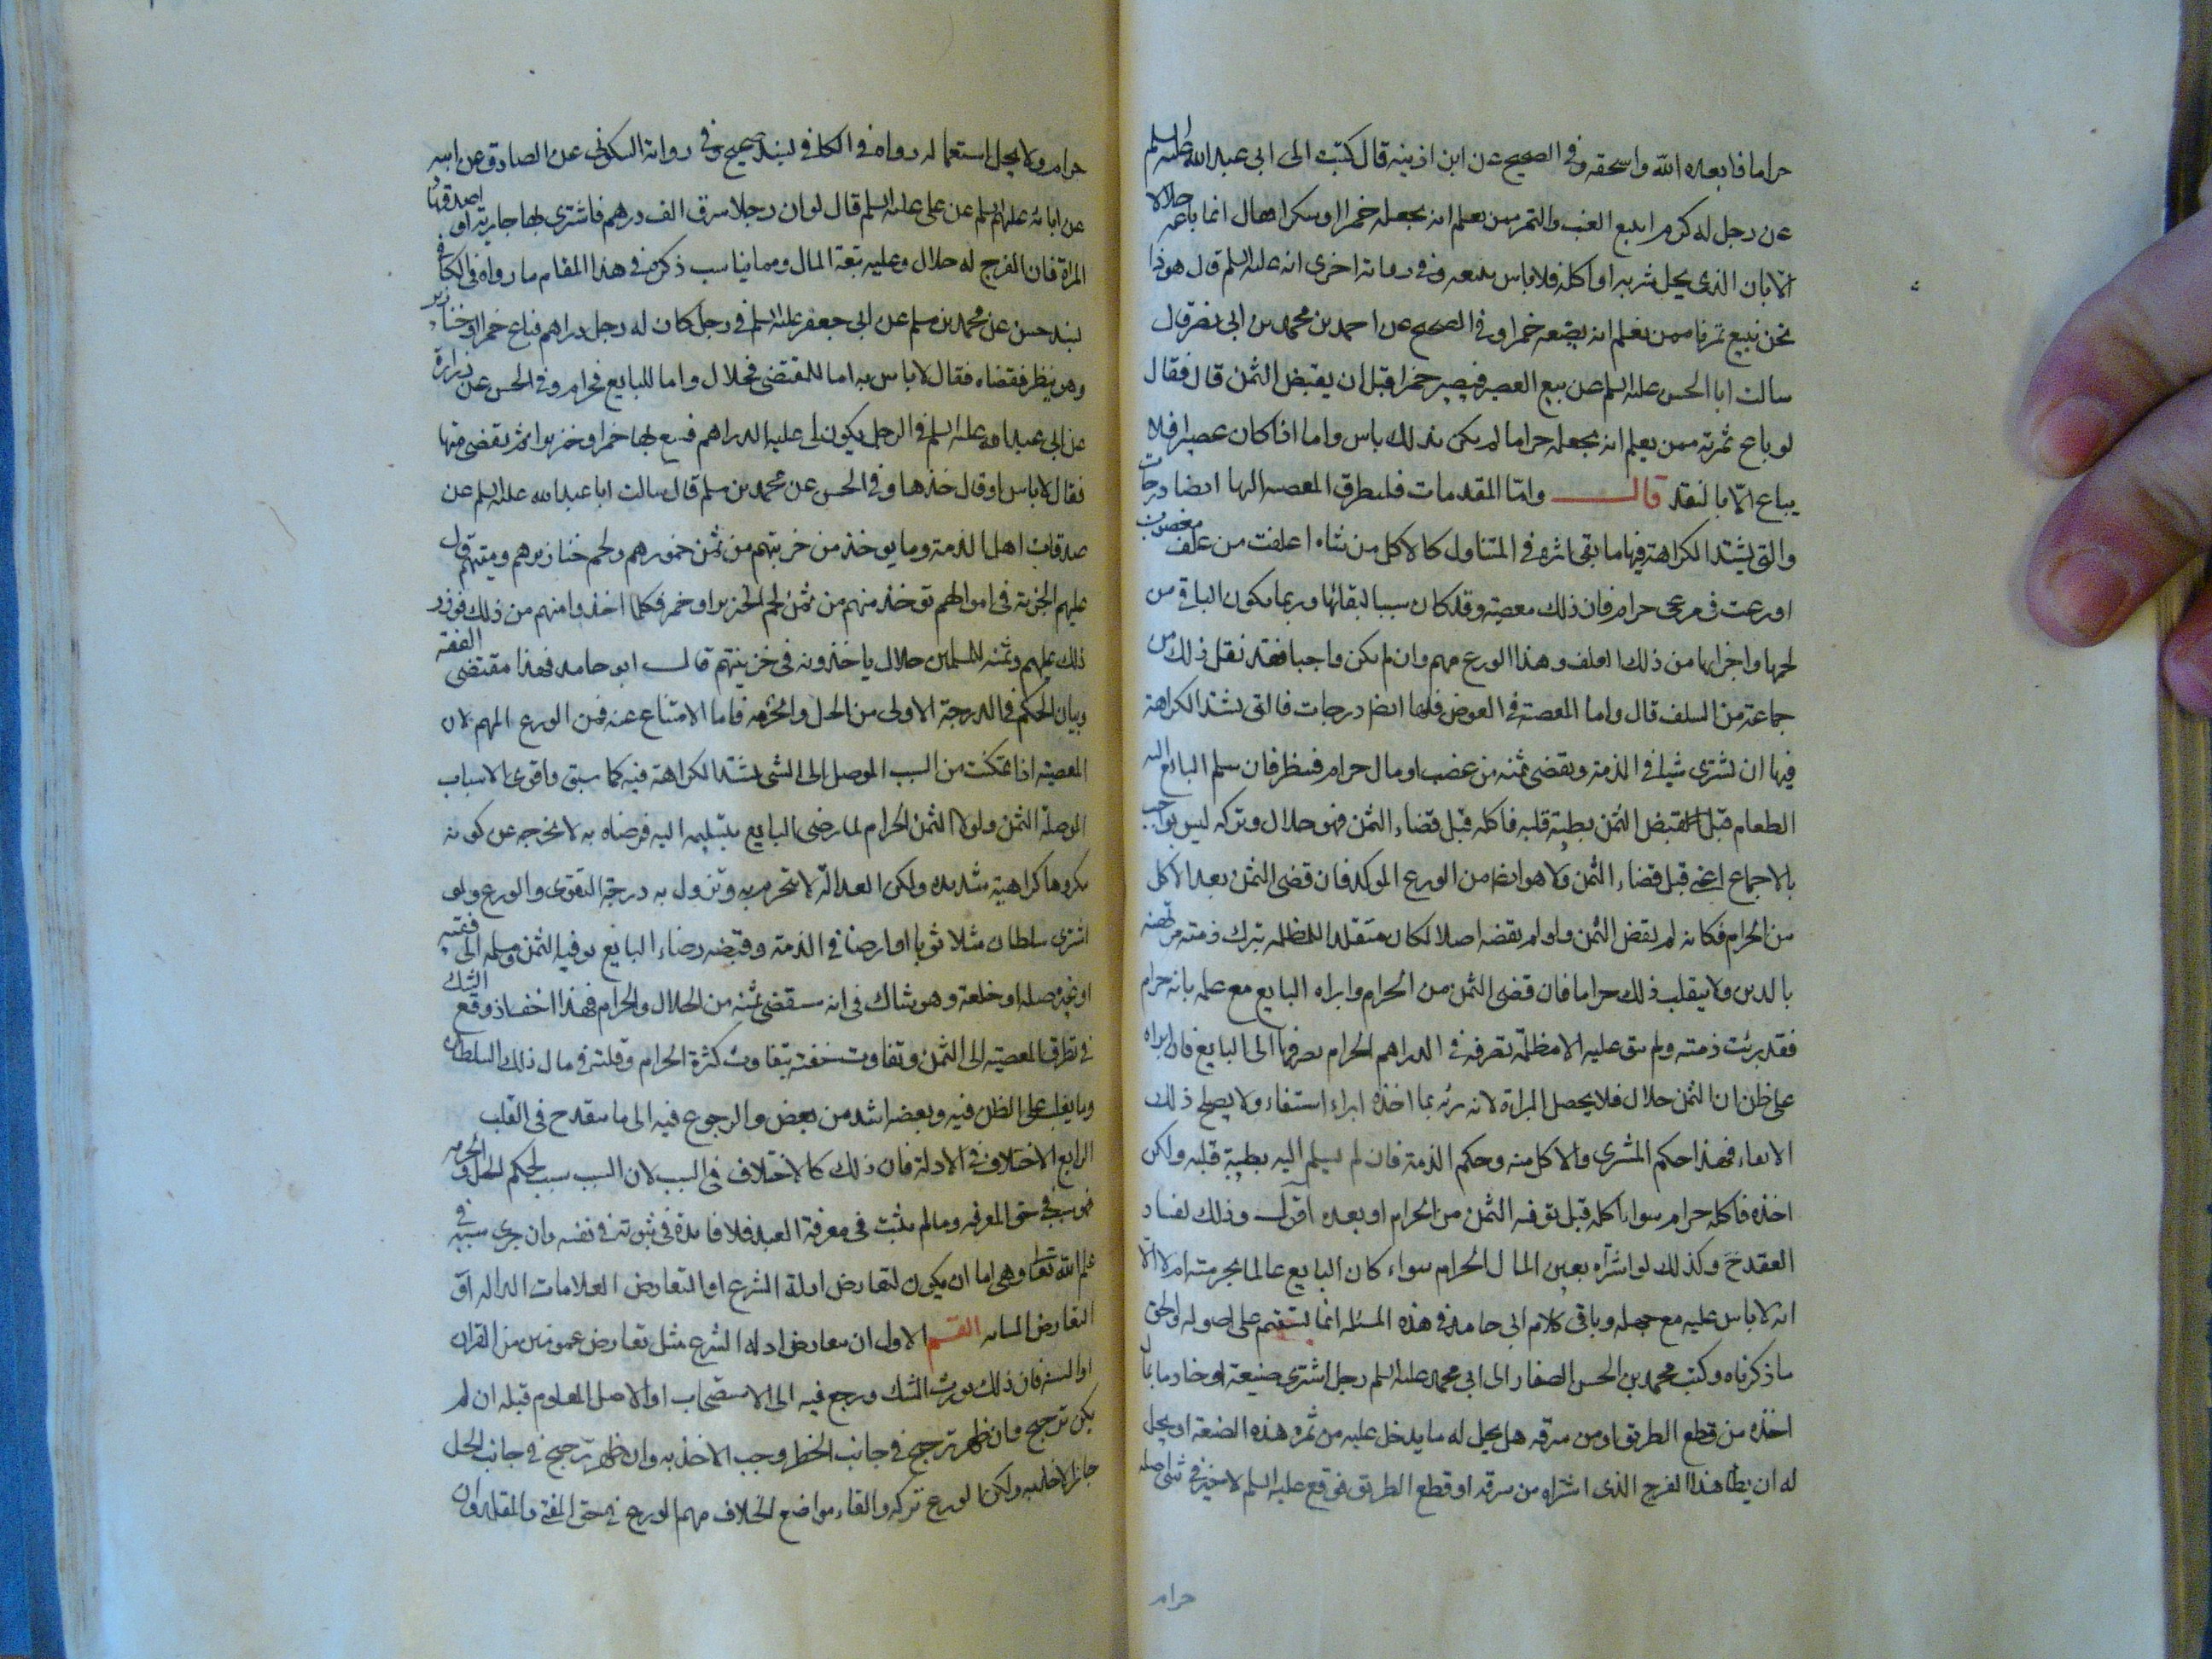 حراما فابعده الله واسحقه وفي الصحيح عن ابن اذينه قال كتبت الى ابي عبد الله عليه السلم
عن رجل له كرم ايبيع العنب والتمر ممن يعلم انه يجعله خمرا او سكرا فقال انما باعه حلالا
الابان الذي يحل شربه او اكله فلا باس ببيعه وفي رواية اخرى انه عليه السلم قال هو ذا
نحن نبيع تمرنا ممن نعلم انه يصنعه خمرا وفي الصحيح عن احمد بن محمد بن ابي نصر قال
سالت ابا الحسن عليه السلم عن بيع العصير فيصير خمرا قبل ان يقبض الثمن قال فقال
لو باع ثمرته ممن يعلم انه يجعله حراما لم يكن بذلك باس واما اذا كان عصيرا فلا
يباع الا بالنقد قال واما المقدمات فليطرق المعصيه اليها ايضا درجات
والتي يشتد الكراهة فيها ما بقي اثره في المتناول كالاكل من شاه اعلفت من علف مغصوب
او رعت في مرعى حرام فان ذلك معصية وقد كان سببا لبقائها وربما يكون الباقي من
لحمها واجزائها من ذلك العلف وهذا الورع مهم وان لم يكن واجبا فقد نقل ذلك من
جماعة من السلف قال واما المعصية في العوض فلها ايضا درجات فالتي يشتد الكراهة
فيها ان يشتري شيئا في الذمة ويقضى ثمنه من غصب او مال حرام فينظر فان سلم البايع اليه
الطعام قبل قبض الثمن بطيبة قلبه فاكله قبل قضاء الثمن فهو حلال وتركه ليس بواجب
بالاجماع اعني قبل قضاء الثمن ولا هو ايضا من الورع الموكد فان قضى الثمن بعد الاكل
من الحرام فكانه لم يقض الثمن ولو لم يقضه اصلا لكان متقلدا للمظلمه بترك ذمته مرتهنه
بالدين ولا ينقلب ذلك حراما فان قضى الثمن من الحرام وابراه البايع مع علمه بانه حرام
فقد برئت ذمته ولم يبق عليه الا مظلمة تصرفه في الدراهم الحرام بصرفها الى البايع فان ابراه
على ظن ان الثمن حلال فلا يحصل البراءة لانه يبريه مما اخذه ابراء استيفاء ولا يصلح ذلك
الايفاء فهذا حكم المشتري والاكل منه وحكم الذمة فان لم يسلم اليه بطيبة قلبه ولكن
اخذه فاكله حرام سواء اكله قبل توفيه الثمن من الحرام او بعده اقول وذلك لفساد
العقد ح وكذلك لو اشتراه بعين المال الحرام سواء كان البايع عالما بحرمته ام لا الا
انه لا باس عليه مع جهله وباقي كلام ابي حامد في هذه المسئله انما يستقيم على اصوله والحق
ما ذكرناه وكتب محمد بن الحسن الصفار الى ابي محمد عليه السلم رجل اشترى ضيعة او خادما بمال
اخذه من قطع الطريق او من سرقه هل يحل له ما يدخل عليه من ثمرة هذه الضيعة او يحل
له ان يطا هذا الفرج الذي اشتراه من سرقة او قطع الطريق فوقع عليه السلم لا خير في شئ اصله
حرام
حرام ولا يحل استعماله رواه في الكافي بسند صحيح وفي رواية السكوني عن الصادق عن ابيه
عن ابائه عليهم السلم عن علي عليه السلم قال لو ان رجلا سرق الف درهم فاشترى بها جارية او اصدقها
المراة فان الفرج له حلال وعليه تبعة المال ومما يناسب ذكره في هذا المقام ما رواه في الكافي
بسند حسن عن محمد بن مسلم عن ابي جعفر عليه السلم في رجل كان له رجل دراهم فباع خمرا او خنازير
وهو ينظر فقضاه فقال لا باس به اما للمقتضى فحلال واما للبايع فحرام وفي الحسن عن زرارة
عن ابي عبد الله عليه السلم في الرجل يكون لي عليه الدراهم فيبيع بها خمرا وخنزيرا ثم يقضى منها
فقال لا باس او قال خذها وفي الحسن عن محمد بن مسلم قال سالت ابا عبد الله عليه السلم عن
صدقات اهل الذمة وما يوخذ من جزيتهم من ثمن خمورهم ولحم خنازيرهم وميتتهم قال
عليهم الجزية في اموالهم توخذ منهم من ثمن لحم الخنزير او خمر فكلما اخذوا منهم من ذلك فوزر
ذلك عليهم وثمنه للمسلمين حلال ياخذونه في جزيتهم قال ابو حامد فهذا مقتضى الفقه
وبيان الحكم في الدرجة الاولى من الحل والحرمه فاما الامتناع عنه فمن الورع المهم لان
المعصية اذا تمكنت من السبب الموصل الى الشئ يشتد الكراهة فيه كما سبق واقوى الاسباب
الموصلة الثمن ولولا الثمن الحرام لما رضى البايع بتسليمه اليه فرضاه به لا يخرجه عن كونه
مكروها كراهية شديده ولكن العدالة لا تنخرم به وتزول به درجة التقوى والورع ولو
اشترى سلطان مثلا ثوبا او ارضا في الذمة وقبضه برضاء البايع يوفيه الثمن وسلمه الى فقيه
او غيره صلة او خلعة وهو شاك في انه سيقضى ثمنه من الحلال والحرام فهذا اخف اذ وقع الشك
في تطرق المعصية الى الثمن وتفاوت خفته بتفاوت كثرة الحرام وقلته في مال ذلك السلطان
وما يغلب على الظن فيه وبعضه اشد من بعض والرجوع فيه الى ما ينقدح في القلب
الرابع الاختلاف في الادلة فان ذلك كالاختلاف في السبب لان السبب سبب لحكم الحل والحرمه
فهو سبب في حق المعرفة وما لم يثبت في معرفة العبد فلا فائدة في ثبوته في نفسه وان جرى سببه في
علم الله تعالى وهي اما ان يكون لتعارض ادلة الشرع او لتعارض العلامات الداله او
التعارض المسابه القسم الاول ان تعارض ادله الشرع مثل تعارض عمومين من القران
او السنه فان ذلك يورث الشك ويرجع فيه الى الاستصحاب او الاصل المعلوم قبله ان لم
يكن ترجيح فان ظهر ترجيح في جانب الحظر وجب الاخذ به وان ظهر ترجيح في جانب الحل
جاز الاخذ به ولكن الورع تركه واتقاء مواضع الخلاف مهم الورع في حق المفتي والمقلد وان